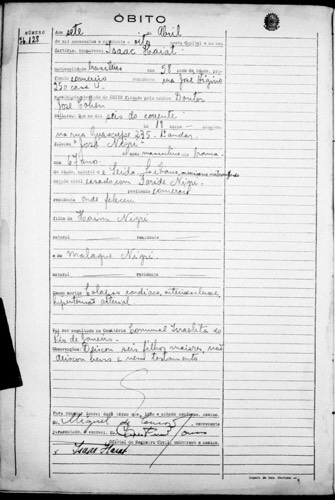 ÓBITO
NÚMERO
76.128
Aos sete de Abril
de mil novecentos e oito nesta Capital e no meu
Cartório, compareceu Isaac Haiat
nacionalidade brasileiro com 58 anos de idade, pro-
fissão comercio residente rua José Higino
250 casa 4.
exibindo atestado de ÓBITO firmado pelo médico Doutor
José Cohen
declarou que no dia seis do corrente
às 19 horas
na rua 235. andar
faleceu "José Nigri"
do sexo masculino branca
com 67 anos
de idade, natural de Saida, Libano
estado civil casado com Nigri
profissão comercio
residente onde faleceu
filho de Haim Nigri
natural residente
e de Malaque Nigri.
natural residente
Causa mortis Colapso cardiaco, arteriosclerose,
hipertensão arterial
Vai ser sepultado no Cemitério Comunal Israelita do
Rio de Janeiro.
Observações: Deixou seis filhos maiores, não
deixou bens e nem testamento
Para constar lavrei este têrmo que, lido e achado conforme, assino.
Eu, Miguel de escrevente
juramentado, o escrevi. E eu,
Oficial do Registro Civil, subscrevo e assino.
Isaac Haiat